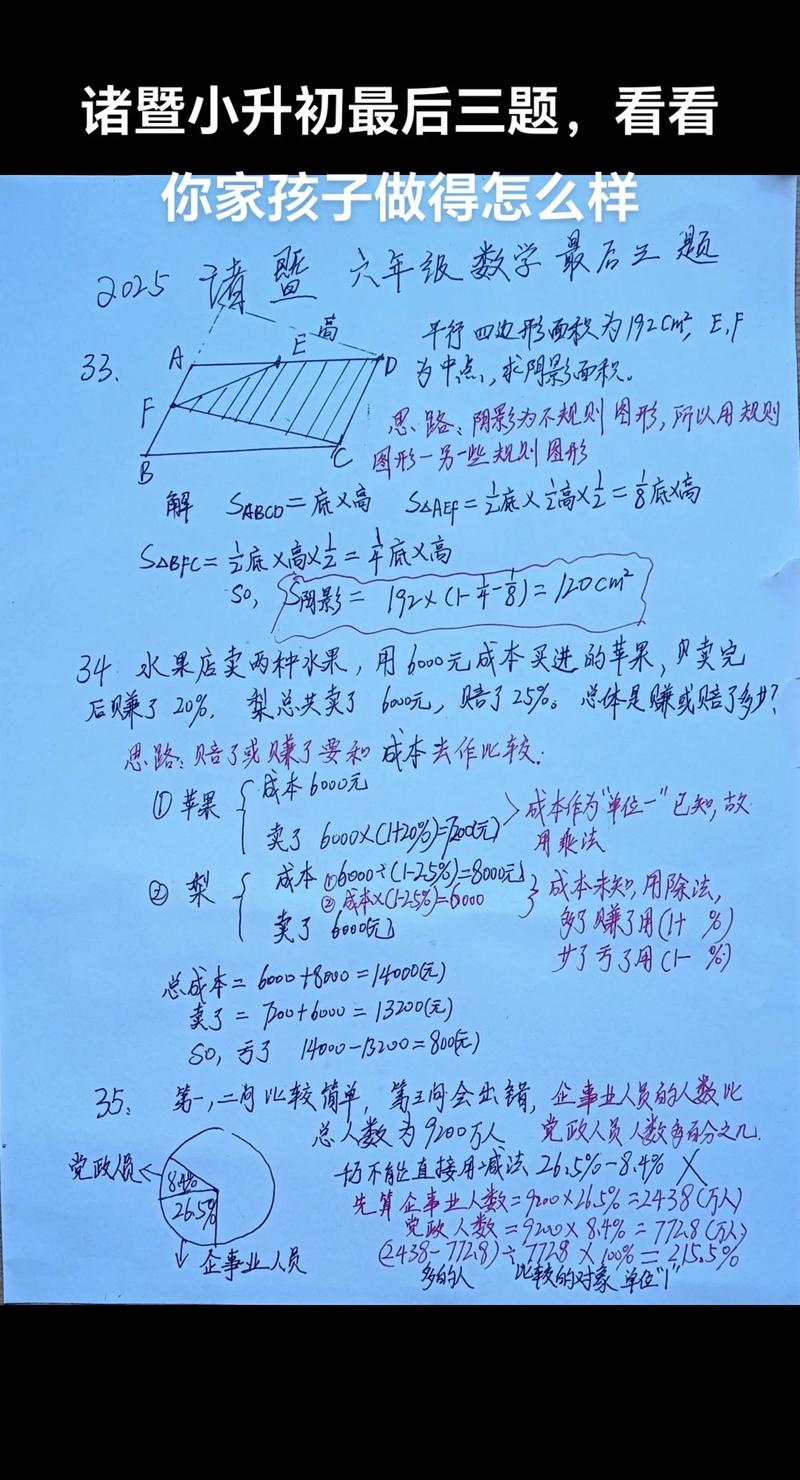 诸暨小升初最后三题，看看
你家孩子做得怎么样
2025 诸暨 六年级数学最后三题
33.
平行四边形面积为192cm², E,F
为中点, 求阴影面积。
高
A
E
D
F
B
C
思路: 阴影为不规则图形, 所以用规则
图形一另一些规则图形
解 SABCD=底×高 S△AEF=1/2底×1/2高×1/2=1/8底×高
S△BFC=1/2底×高×1/2=1/4底×高
SO, S阴影= 192×(1-1/4-1/8)=120cm²
34 水果店卖两种水果, 用6000元成本买进的苹果, 卖完
后赚了20%. 梨总共卖了 6000元, 赔了25%。总体是赚或赔了多少?
思路: 赔了或赚了要和成本去作比较.
①苹果 成本6000元
卖了 6000×(1+20%)=7200(元)
成本作为"单位一"已知, 故
用乘法
② 梨 成本 ①6000÷(1-25%)=8000元
②成本×(1-25%)=6000
卖了 6000(元)
成本未知, 用除法,
多了赚了用(1+ %)
少了亏了用(1- %)
总成本=6000+8000=14000(元)
卖了=7200+6000=13200(元)
SO, 亏了 14000-13200=800(元)
35: 第一,二问比较简单, 第三问会出错, 企事业人员的人数比
总人数为9200万人 党政人员人数多百分之几.
党政人员
8.4%
26.5%
企事业人员
一切不能直接用减法 26.5%-8.4% X
先算企事业人数=9200×26.5%=2438(万人)
党政人数=9200×8.4%=772.8(万人)
(2438-772.8)÷772.8×100%=215.5%
多的人 比较的对象 单位"1"